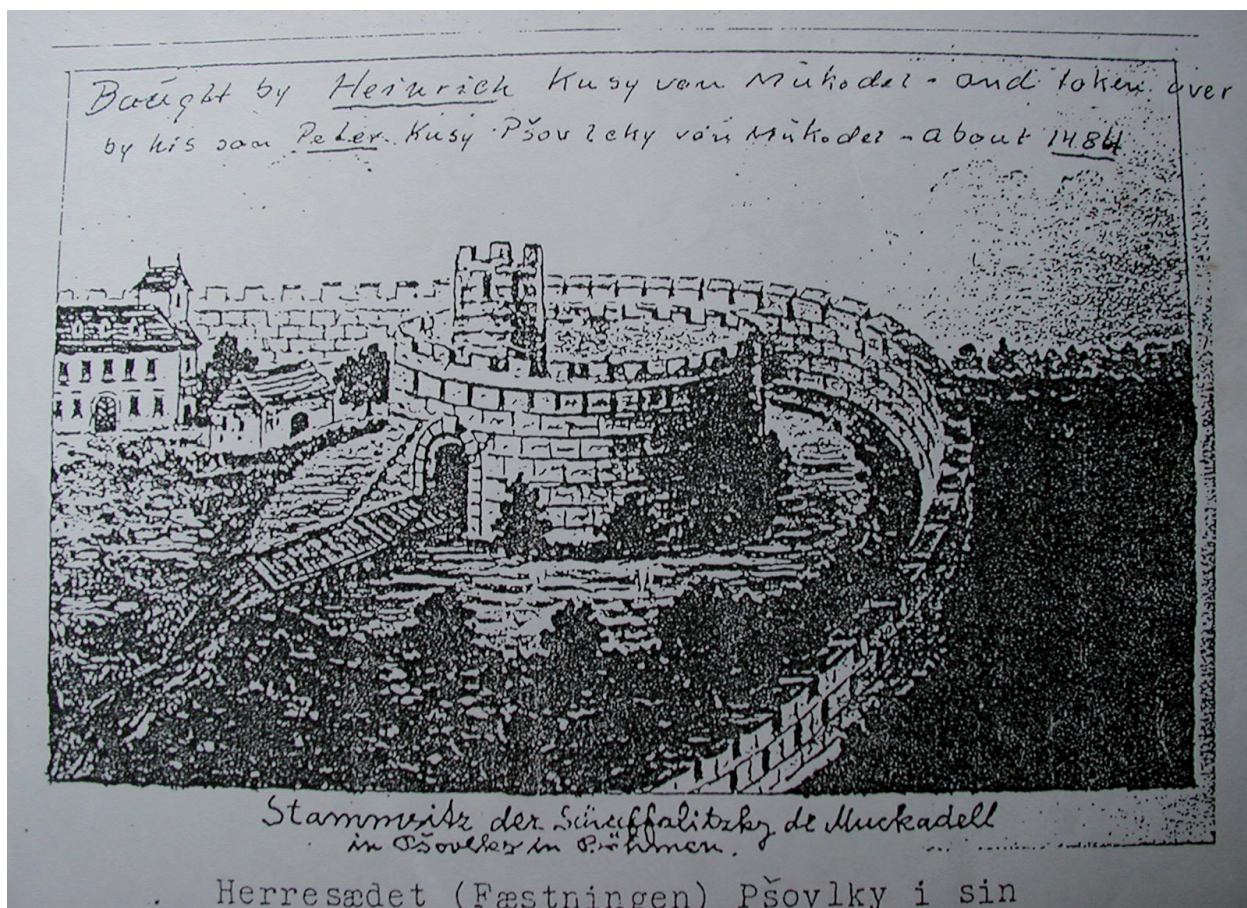 Bought by Heinrich Kusy von Mukodel - and taken over
by his son Peter Kusy Pšovlcky von Mukodel - about 1484
Stammsitz der Schaffalitzky de Muckadell
in Pšovlky in Böhmen.
Herresædet (Fæstningen) Pšovlky i sin